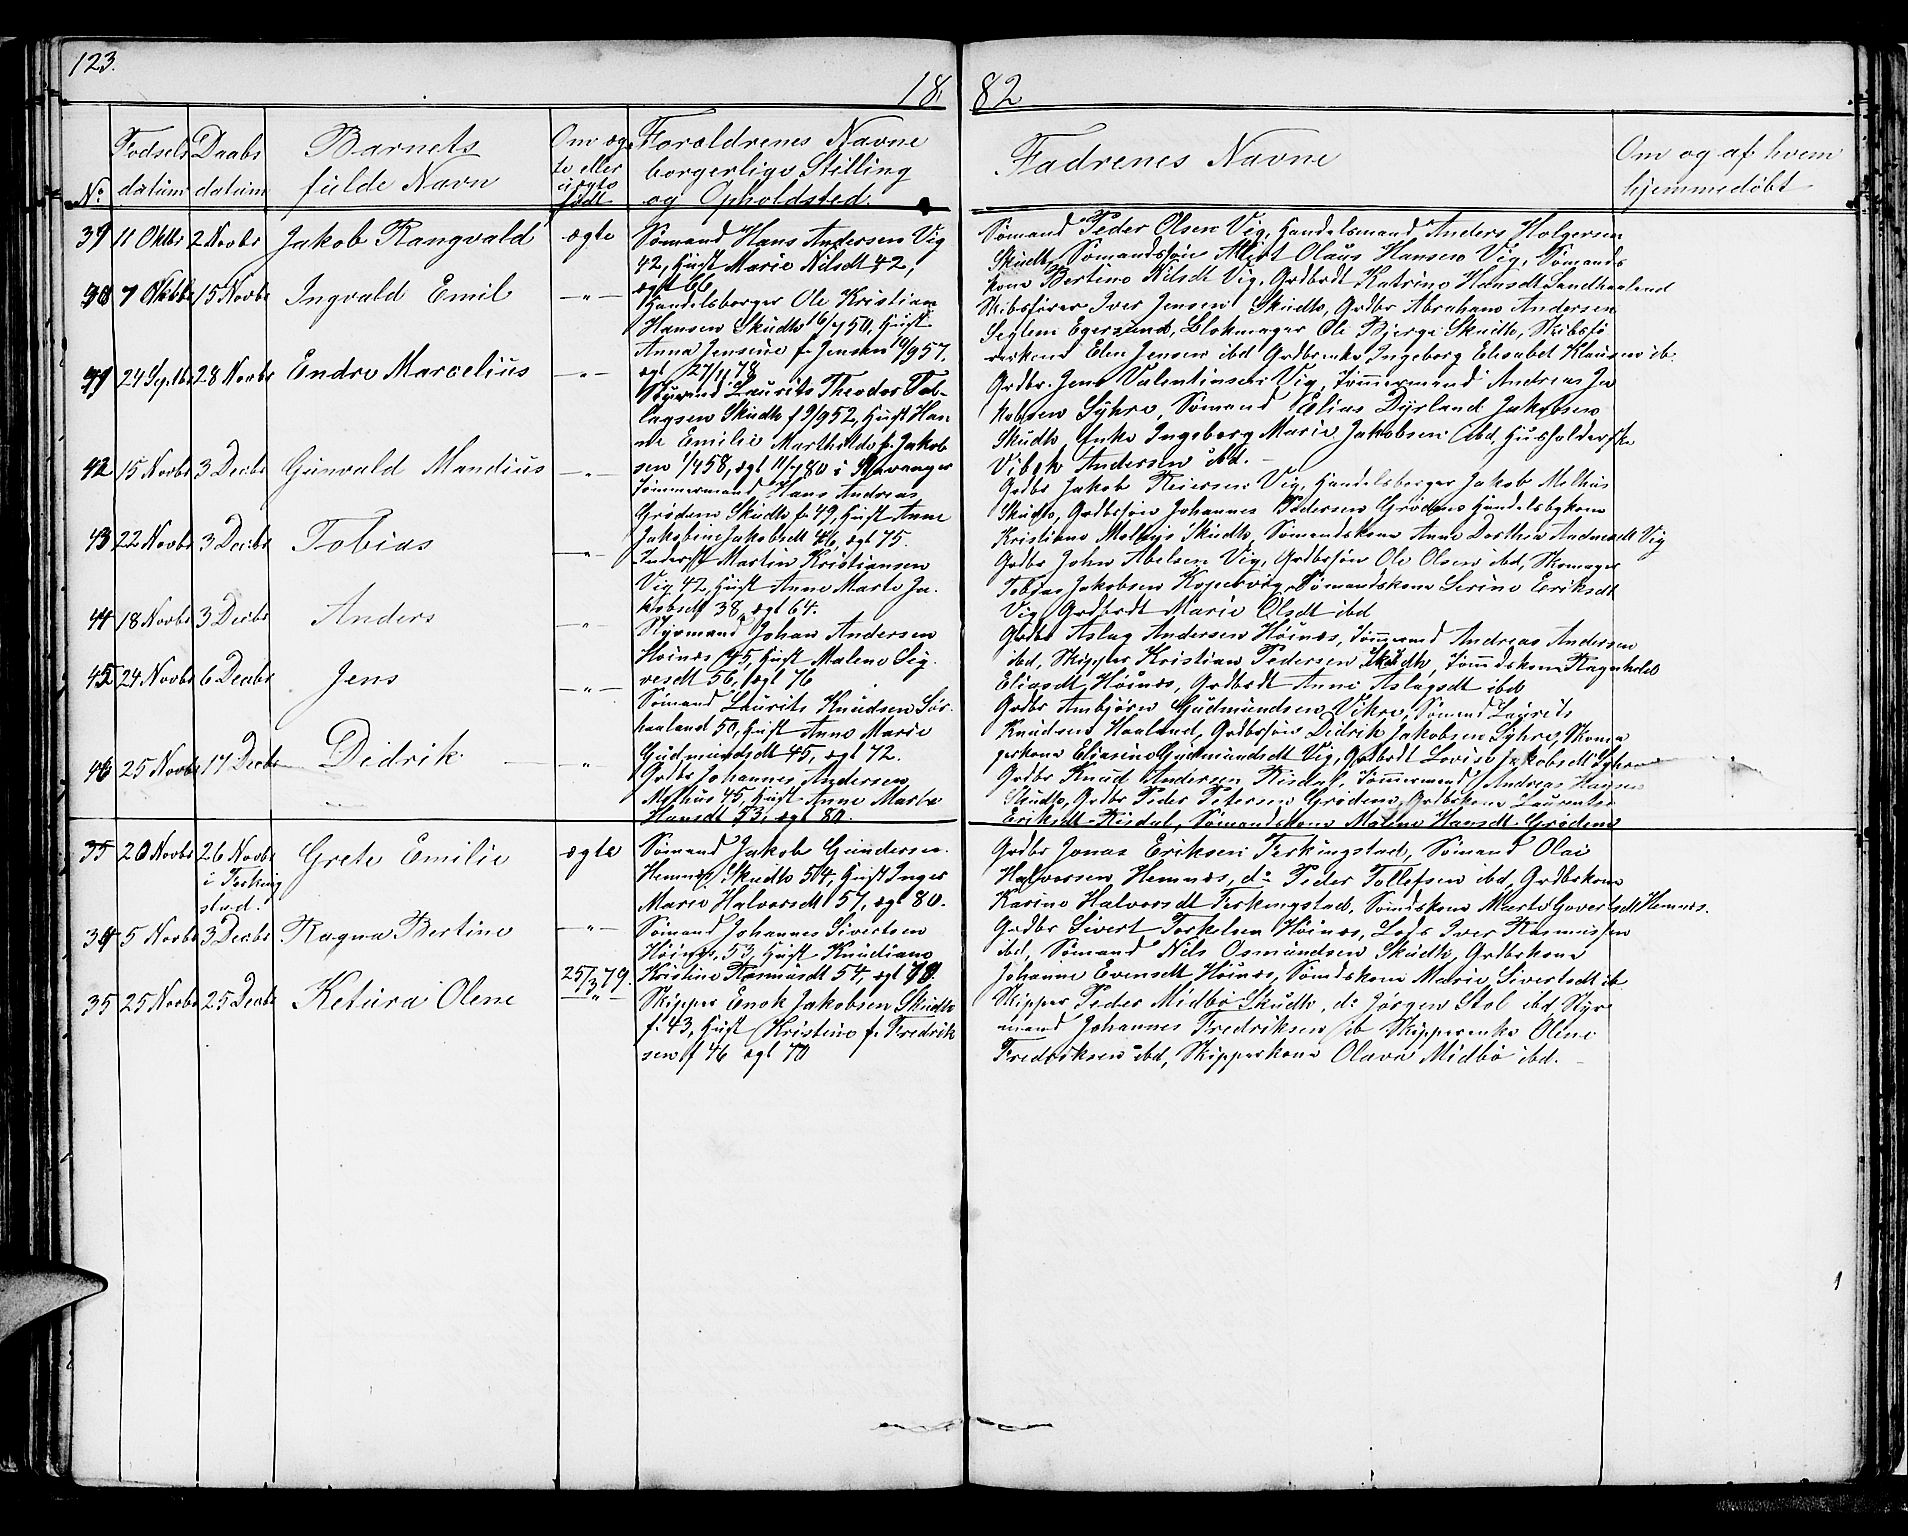 123.
18 82
No
Fødsels datum
Daabs datum
Barnets fulde Navn
Om ægte eller uægte født
Forældrenes Navne borgerlige Stilling og Opholdsted.
Fadrenes Navne
Om og af hvem hjemmedøbt
39 11 Oktbr 2 Novbr Jakob Rangvald ægte
Sømand Hans Andersen Vig
42, Hust Marie Nilsdt 42,
ægt 66
Sømand Peder Olsen Vig, Handelsmand Anders Holgersen
Skudh, Sømandssøn Olaus Hansen Vig, Sømands
kone Bertine Nilsdt Vig, Grdbrdt Katrine Hansdt Sandhaaland
7 Oktbr 15 Novbr Ingvald Emil — " —
Handelsborger Ole Kristian
Hansen Skudh 16/4 50, Hust
Anna Jensine f. Jensen 10/9 57,
ægt 27/11 78
Skibsfører Iver Jensen Skudh, Grdbr Abraham Andersen
Seglem Egersund, Blokmager Ole Bjerge Skudh, Skibsfø
rerkone Elen Jensen ibd Grdbrenke Ingeborg Elisabet Klausen ib.
41 24 Septbr 28 Novbr Endre Marselius — " —
Styrmd Laurits Theodor Tol-
lagsen Skudh f 9/9 52, Hust Han
ne Emilie Mathilde f. Jakob
sen 1/4 58, ægt 11/4 80 i Stavanger
Grdbr. Jens Valentinsen Vig, Tømmermand Andreas Ja
kobsen Syhre, Sømand Elias Dyrland Jakobsen
Skudh, Enke Ingeborg Marie Jakobsen ibd, Husholderske
Vibek Andersen ibd. —
42 15 Novbr 3 Decbr Gunvald Mandius — " —
Tømmermand Hans Andreas
Grødem Skudh f. 49, Hust Anne
Jakobine Jakobsdt 46, ægt 75.
Grdbr Jakob Reiersen Vig, Handelsborger Jakob Melhus
Skudh, Grdbrsøn Johannes Pedersen Grødem Handelsbgkone
Kristiane Melhus Skudh, Sømandskone Anne Dorthea Andreasdt Vig
43 22 Novbr 3 Decbr Tobias — " —
Inderst Martin Kristiansen
Vig 42, Hust Anne Marte Ja-
kobsdt 38, ægt 64.
Grdbr John Abelsen Vig, Grdbrsøn Ole Olsen ibd, Skomager
Tobias Jakobsen Kopervig, Sømandskone Serine Eriksdt
Vig, Grdbrdt Marie Olsdt ibd
44 18 Novbr 3 Decbr Anders — " —
Styrmand Johan Andersen
Høinæs 45, Hust Malene Sig-
vesdt 56, ægt 76
Grdbr Aslag Andersen Høinæs, Tømmermd Andreas Andersen
ibd, Skipper Kristian Pedersen Skudh, Tømmdskone Ragnhild
Eliasdt Høinæs, Grdbrdt Anne Aslagsdt ibd
45 24 Novbr 6 Decbr Jens — " —
Sømand Laurits Knudsen Sør-
haaland 50, Hust Anne Marie
Gudmundsdt 45, ægt 72.
Grdbr Ambjørn Gudmundsen Vikre, Sømand Laurits
Knudsen Haaland, Grdbrsøn Didrik Jakobsen Syhre, Skoma
gerkone Eliasine Gudmundsdt Vig, Grdbrdt Lovise Jakobsdt Syhre
46 25 Novbr 17 Decbr Didrik — " —
Grdbr Johannes Andersen
Melhus 45, Hust Anne Marte
Hansdt 53, ægt 80.
Grdbr Knud Andersen Risdal, Tømmermand Andreas Hansen
Skudh, Grdbr Peder Petersen Grødem, Grdbrkone Laurentse
Eriksdt Risdal, Sømandskone Malene Hansdt Grødem
20 Novbr 26 Novbr i Ferkingstad. Grete Emilie ægte
Sømand Jakob Gundersen
Hemnes Skudh 54, Hust Inger
Marie Halvorsdt 57, ægt 80.
Grdbr Jonas Eriksen Ferkingstad, Sømand Olai
Halvorsen Hemnæs, do Peder Tollefsen ibd, Grdbrkone
Karine Halvorsdt Ferkingstad, Sømdskone Marte Govertsdt Hemnes.
34 5 Novbr 3 Decbr Ragna Bertine — " —
Sømand Johannes Sivertsen
Høinæs, 53, Hust Knudiane
Kristine Rasmusdt 54, ægt 25/3 79.
Grdbr Sivert Torkelsen Høinæs, Lods Iver Rasmussen
ibd, Sømand Nils Osmundsen Skudh, Grdbrkone
Johanne Evensdt Høinæs, Sømdskone Marie Sivertsdt ib
35 25 Novbr 25 Decbr Ketura Olene — " —
Skipper Enok Jakobsen Skudh
f. 43, Hust Kristine f. Fredrik
sen f 46 ægt 70
Skipper Peder Midbø Skudh, do Jørgen Stol ibd, Styr
mand Johannes Fredriksen ib Skipperenke Oline
Fredriksen ibd, Skipperkone Olava Midbø ibd. —